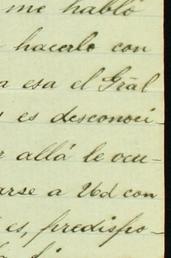 me habló
hacerlo con
a esa el Gral
es desconoci-
r allá le ocu-
arse a Ud con
es, predispo-